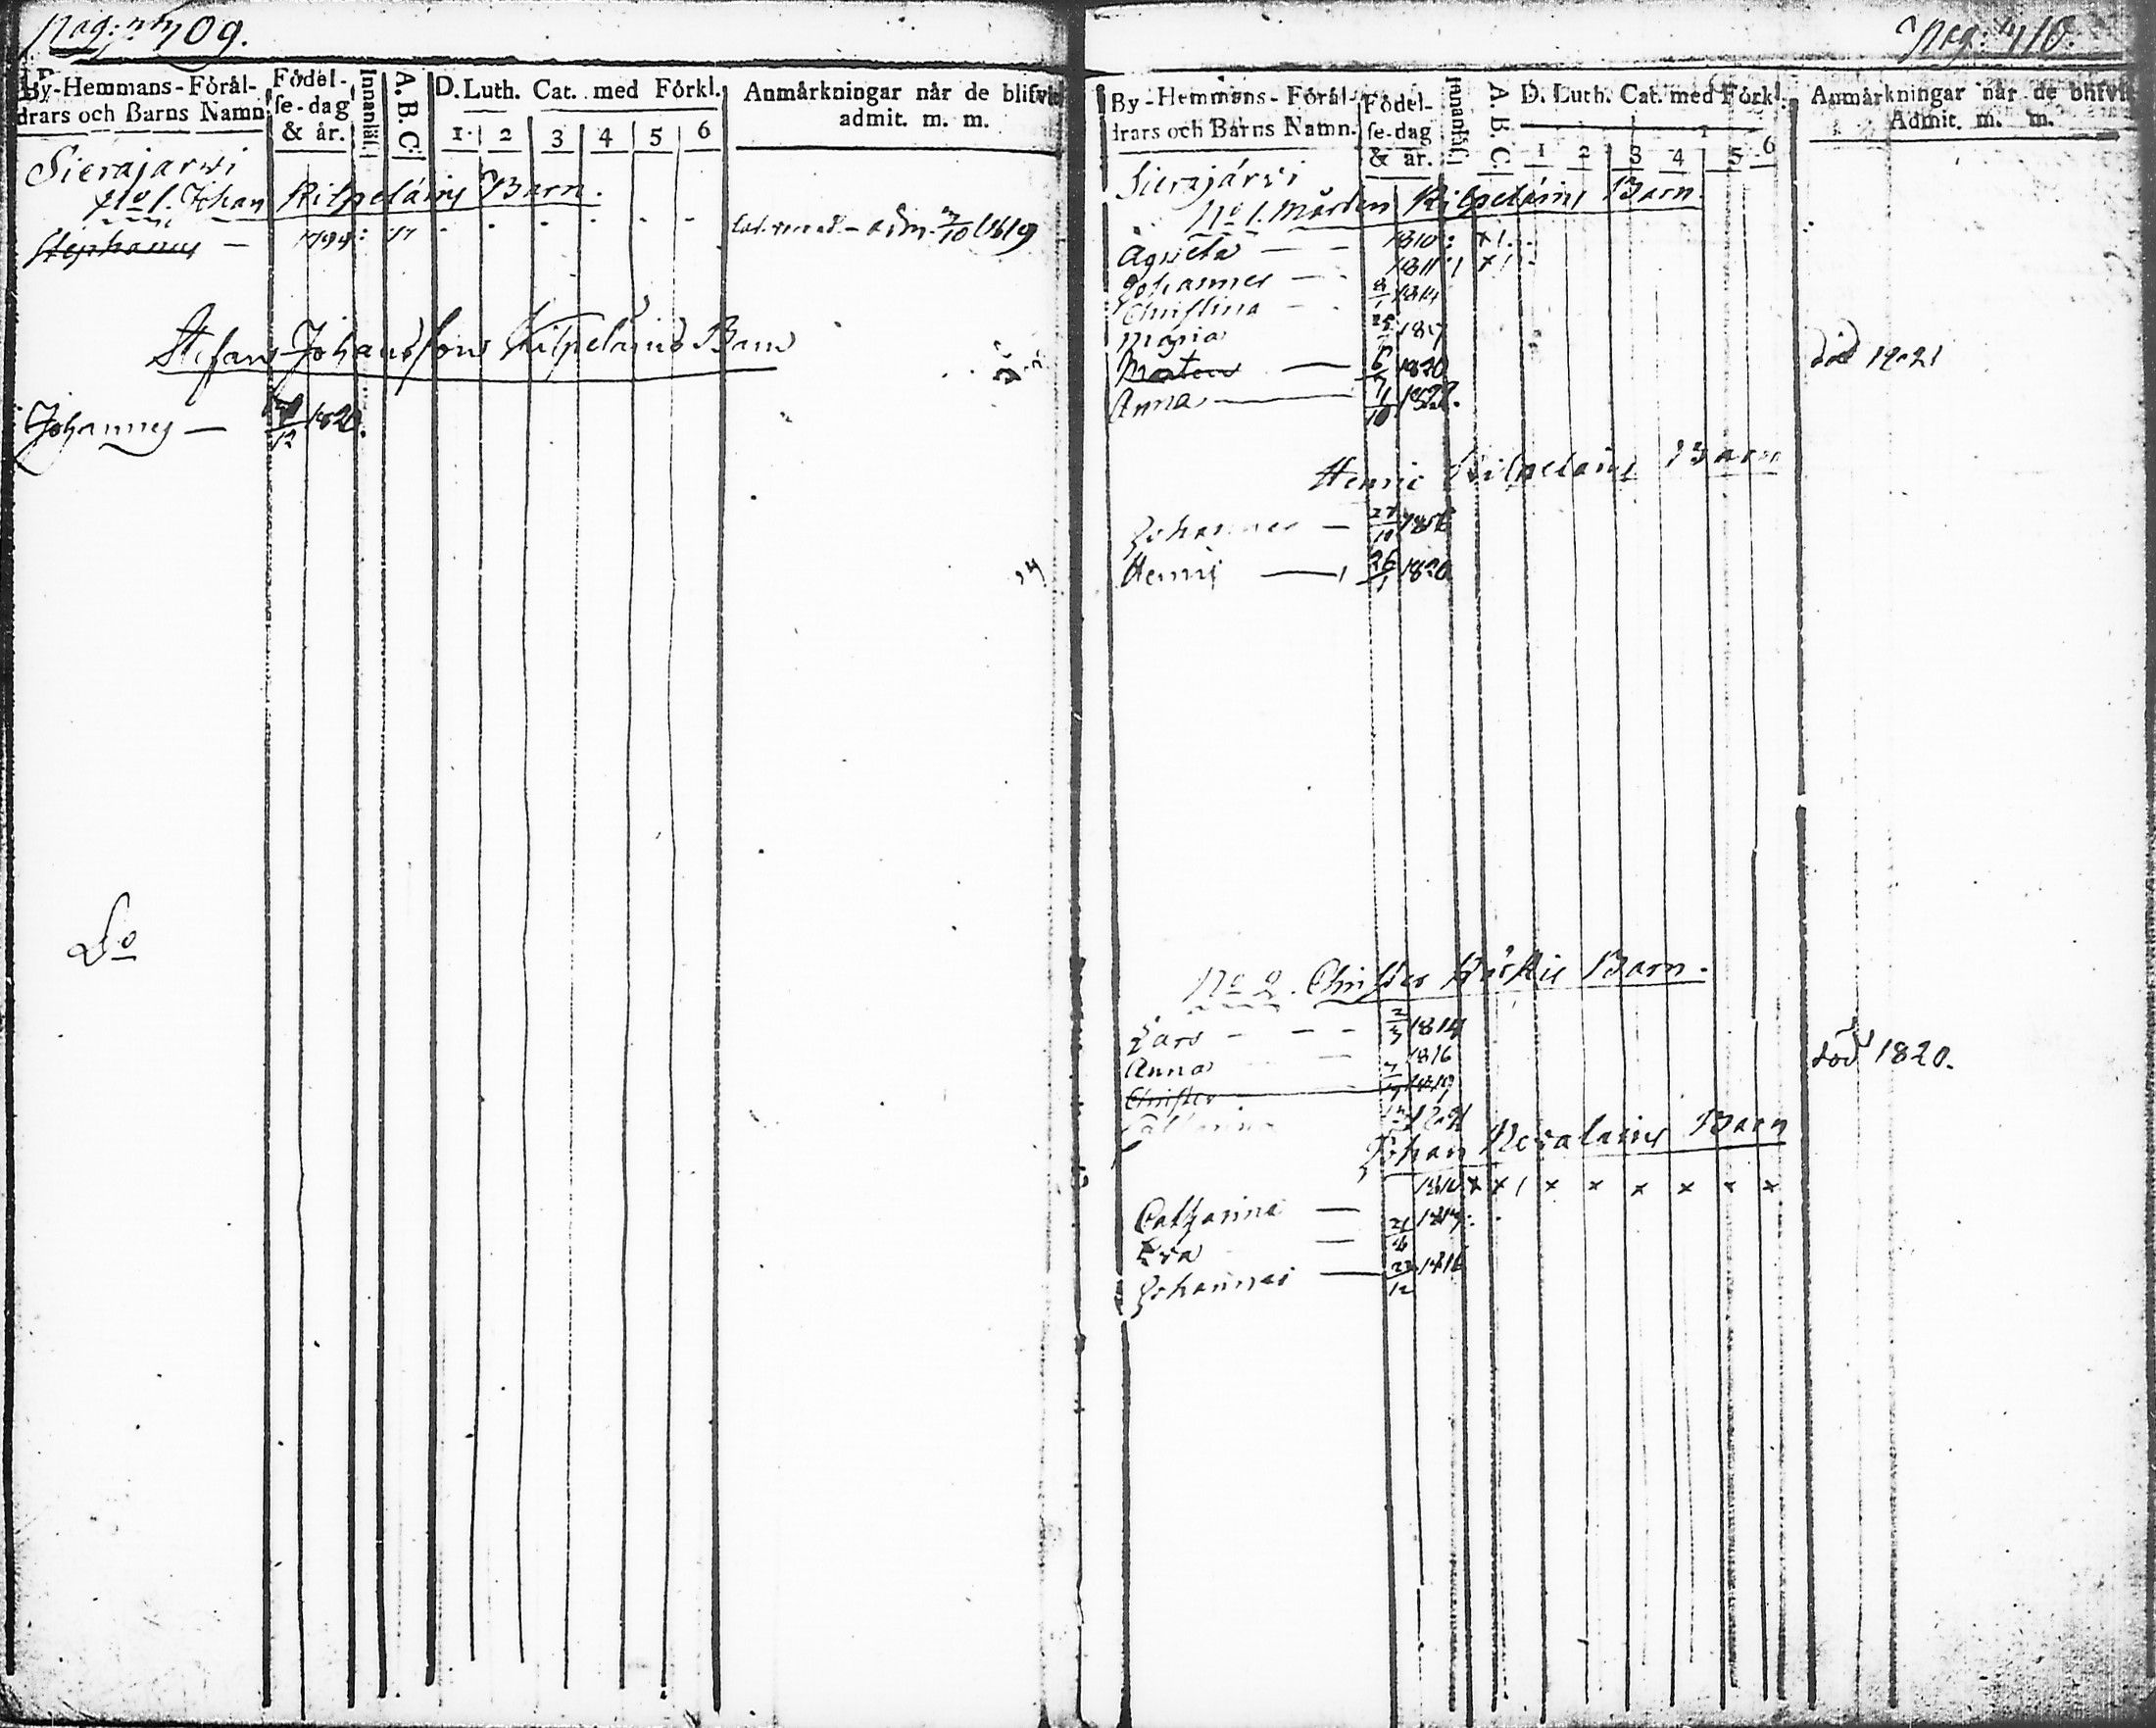 Pag: 409.
By-Hemmans-Förål-
drars och Barns Namn
Födel-
se-dag
& år.
Innanläs.
A. B. C.
D. Luth. Cat. med Förkl.
1. 2 3 4 5 6
Anmårkningar når de blifvit
admit. m. m.
Sierajarwi
No 1. Johan Kilpeläins Barn.
Stephanus — 1799: adm. 1819
Stefans Johansons Kilpeläins Barn
Johannes — 12 1820.
Do
Pag: 410.
By-Hemmans-Förål-
drars och Barns Namn.
Födel-
se-dag
& år.
Innanläs.
A. B. C.
D. Luth. Cat. med Förkl.
1 2 3 4 5 6
Anmårkningar når de blifvit
Admit. m. m.
Sierajärvi
No 1. Mårten Kilpeläins Barn.
Agneta — — 1810: x 1.
Johannes — — 1811 x
Christina — 8/1 1814
Maria 1817
Morten — 6 1820 död 1821
Anna — 7/10 1822.
Henric Kilpelains Barn
Johannes — 27
Henric — 26/1 1820
No 2. Christer Barn.
Lars — — — 2/3 1814
Anna — 1816
Christer 1819 död 1820.
Catharina
Johan Barn
Catharina — x x 1 x x x x x x
Eva — 21
Johannes — 22/12 1816